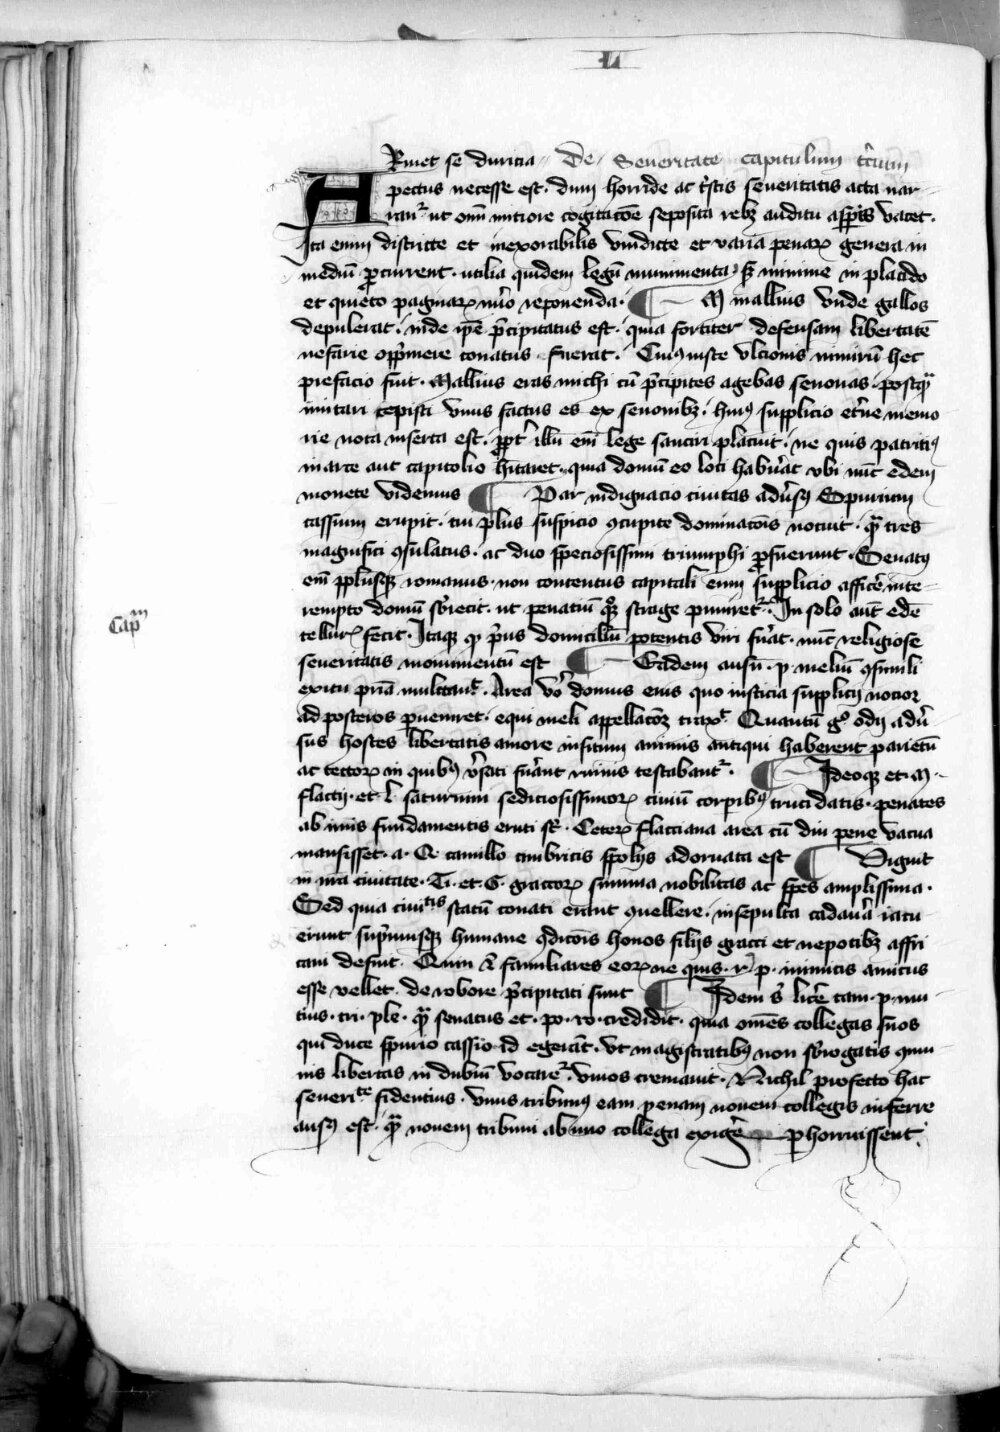 VI
ARmet se duricia De Seueritate capitulum t̃cium
pectus necesse est. dum horride ac t̃stis seueritatis acta nar
ranᷣ ut om̄i mitiore cogitac̄oe seposita rebꝫ auditu asp̲is vacet.
Ita enim districte et inexorabilis vindicte et varia penaꝝ genera in
mediū ꝓcurrent. utilia quidem legū munimenta. sꝫ minime in placido
et quieto paginaꝝ nũo reponenda. ¶ M mallius vnde gallos
depulerat. inde ip̄e p̃cipitatus est. quia fortiter defensam libertatē
nefarie opp̃mere conatus fuerat. Cuiꝰ iuste vlcionis nimirū hec
prefacio fuit. Mallius eras michi cū p̃cipites agebas senonas. postqᷓ
imitari cepisti vnus factus es ex senonibꝫ. huiꝰ supplicio et̃ne memo
rie nota inserta est. ꝓpt̃ illū em̄ lege sanciri placuit. ne quis patritiꝰ
in arce aut capitolio h̃itaret. quia domū eo loci habũat vbi nūc edem
monete videmus ¶ Par indignacio ciuitas adũsꝰ Spurium
cassium erupit. cui plus suspicio ꝯcupite dominac̄ois nocuit. qᷓ tres
magnifici ꝯsulatus. ac duo speciosissimi triumphi ꝓfuerunt. Senatꝰ
em̄ pplusqꝫ romanus. non contentus capitali eum supplicio affic̃e inte
rempto domū sb̃iecit. ut penatiū qꝫ strage puniretᷣ. In solo aūt edē
Capᵐ
telluꝝ fecit. Itaqꝫ qͦ p̃us domiciliū potentis viri fũat. nūc religiose
seueritatis monimentū est ¶ Eadem ausū. p meliū ꝯsimili
exitu pr̃ia multauit. Area vo᷒ domus eius quo iusticia supplicij notior
ad posteros ꝑueniret. equi meli appellac̄oeꝫ traxᷤ. Quantū gͦ odij adũ
sus hostes libertatis amore insitum animis antiqui haberent parietū
ac tectoꝝ in quibꝰ ṽsati fũant ruinis testabantᷣ. ¶ Ideoqꝫ et. M.
flacti. et. L. saturnini sediciosissimoꝝ ciuiū corꝑibꝰ trucidatis. penates
ab imis fundamentis eruti sͭ. Ceteꝝ flacciana area cū diu pene vacua
mansisset. a. Q. catullo cimbricis spolijs adornata est ¶ Viguit
in nr̃a ciuitate. Ti. et. G. graccoꝝ summa nobilitas ac spes amplissima.
Sed quia ciuitᵗⁱˢ statū conati erāt ꝯuellere. insepulta cadaũa iacu
erunt sup̃musqꝫ humane ꝯdic̄ois honos filijs gracci et nepotibꝫ affri
cani defuit. Quin & familiares eoꝝ ne quis. r. p. inimicis amicus
esse vellet. de robore p̃cipitati sunt ¶ Idem s̃ lic̃e tam. p. mu
tius. tri. ple. qᷓ senatus et. po. ro. credidit. quia om̄es collegas suos
qui duce spurio cassio id egerāt. vt magistratibꝰ non sb̃rogatis qmu
nis libertas in dubiū vocareᷣ. viuos cremauit. Nichil ꝓfecto hac
seueritᵗᵉ fidentius. vnus tribunꝰ eam penam nouem collegis inferre
ausꝰ est. qᷓ nouem tribuni ab uno collega exig̃e ꝑhorruissent.